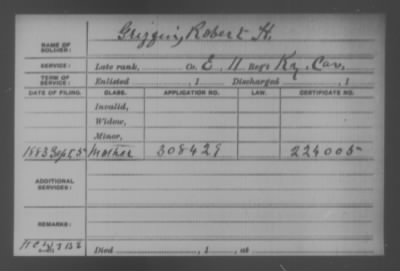 NAME OF SOLDIER: Griffin, Robert H.
SERVICE: Late rank, Co. E, 11 Reg't Ky. Cav.
TERM OF SERVICE: Enlisted , 1 Discharged , 1
DATE OF FILING. CLASS. APPLICATION NO. LAW. CERTIFICATE NO.
Invalid,
Widow,
Minor,
1883 Sept 5 Mother 308429 224005
ADDITIONAL SERVICES:
REMARKS:
Died , 1 , at